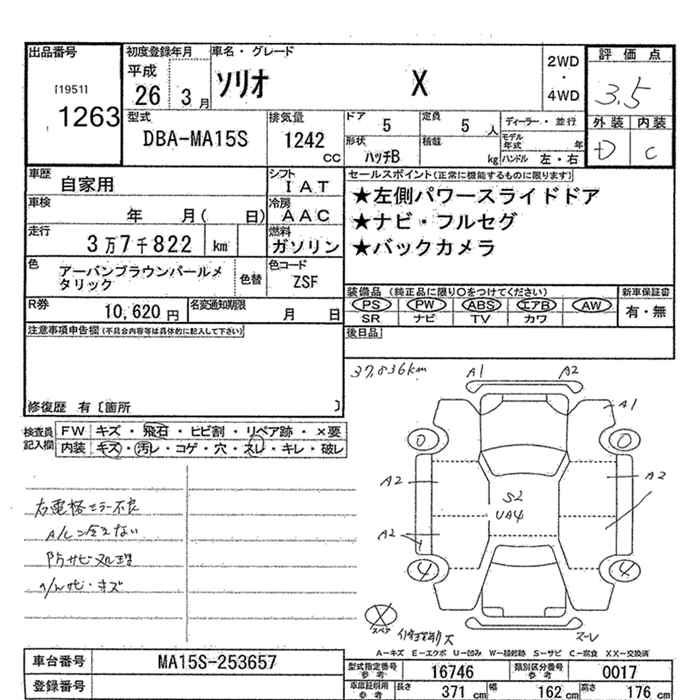 出品番号
[1951]
1263
初度登録年月
平成
26 3月
車名・グレード
ソリオ X
2WD
・
4WD
評価点
3.5
外装 内装
D C
型式
DBA-MA15S
排気量
1242
CC
ドア
5
定員
5 人
ディーラー・並行
形状
ハッチB
積載
kg
モデル年式 年
ハンドル 左・右
車歴
自家用
シフト
IAT
車検
年 月( 日)
冷房
AAC
走行
3万7千822 km
燃料
ガソリン
色
アーバンブラウンパールメタリック
色替
色コード
ZSF
R券
10,620 円
名変通知期限
月 日
セールスポイント(正常に機能するものに限ります)
★左側パワースライドドア
★ナビ・フルセグ
★バックカメラ
装備品(純正品に限り○をつけてください)
PS PW ABS エアB AW
SR ナビ TV カワ
新車保証書
有・無
注意事項申告欄(不具合内容等は具体的に記入して下さい)
後日品
修復歴 有〔箇所 〕
検査員記入欄
FW キズ・飛石・ヒビ割・リペア跡・×要
内装 キズ・汚レ・コゲ・穴・スレ・キレ・破レ
37,836km
A1 A2
A1
0 0
A2 A2
S2
UA4
A2
4 4
右電格ミラー不良
A/C冷えない
防サビ処理
スペア
A-キズ E-エクボ U-凹み W-補修跡 S-サビ C-腐食 XX-交換済
車台番号
MA15S-253657
登録番号
型式指定番号 参考
16746
類別区分番号 参考
0017
車庫証明用 参考
長さ 371 cm
幅 162 cm
高さ 176 cm